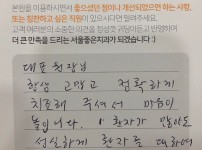 본원을 이용하시면서 좋으셨던 점이나 개선되었으면 하는 사항,
또는 칭찬하고 싶은 직원이 있으시다면 말씀해주세요.
고객 여러분의 소중한 의견을 정성껏 귀담아듣고 반영하여
더 큰 만족을 드리는 서울좋은치과가 되겠습니다 :)
대표원장님
항상 고맙고 정확하게
치료해 주셔서 마음이
놓입니다. 환자가 많아도
성실하게 환자를 대하여